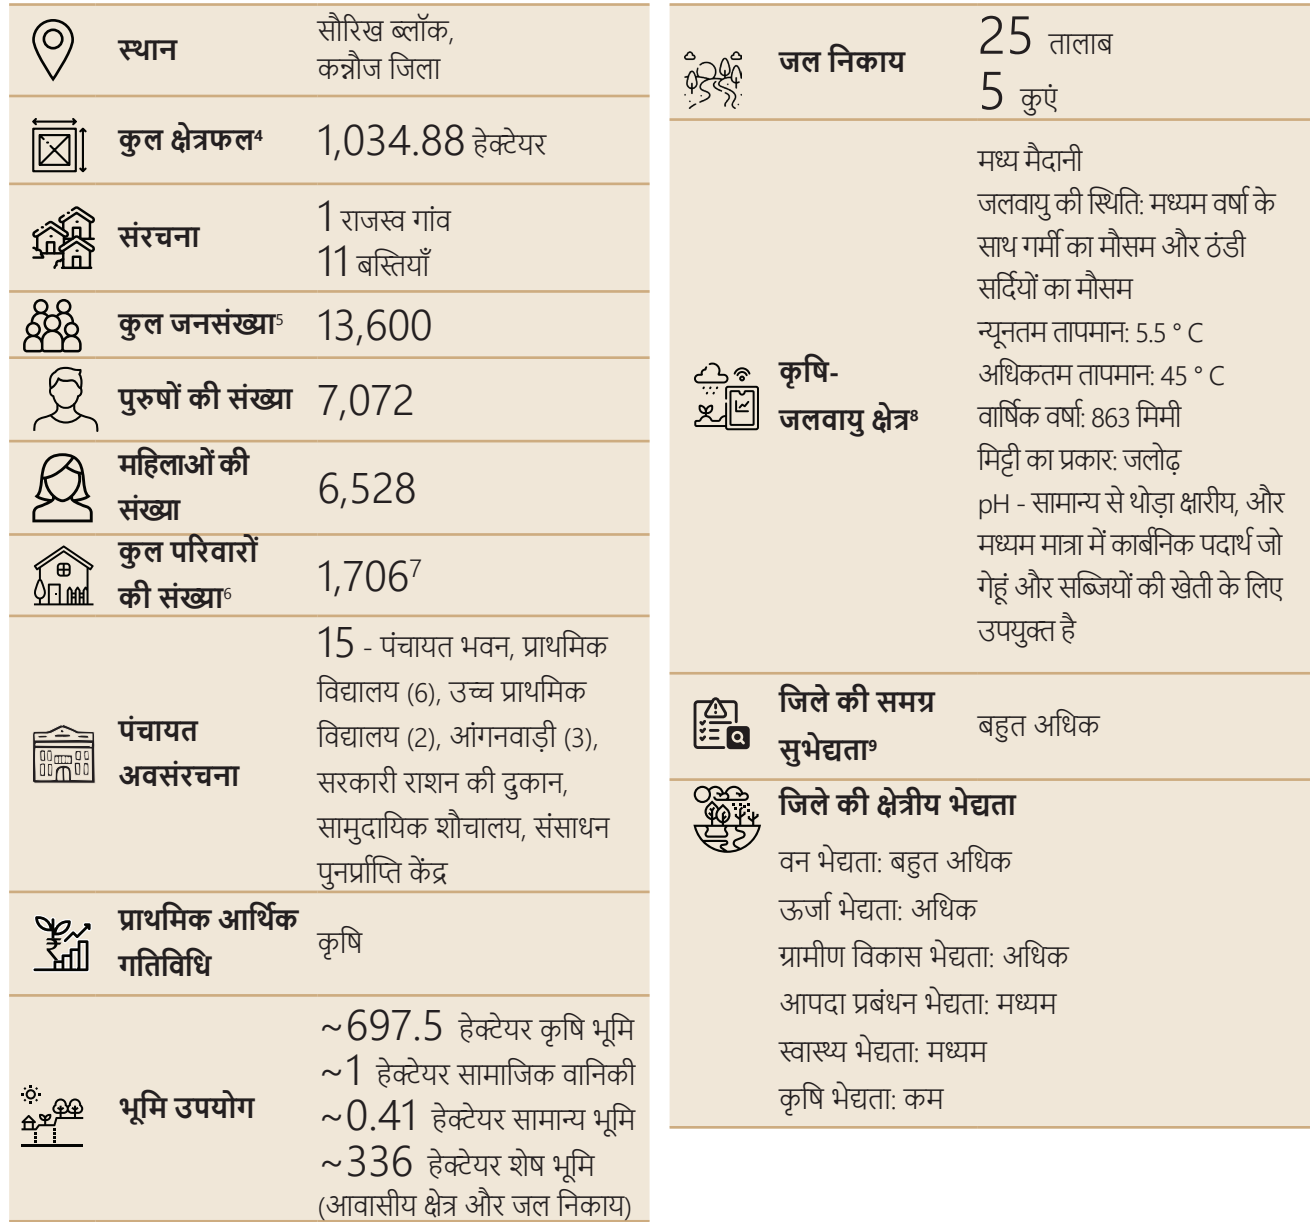 स्थान
सौरिख ब्लॉक,
कन्नौज जिला
कुल क्षेत्रफल⁴
1,034.88 हेक्टेयर
संरचना
1 राजस्व गांव
11 बस्तियाँ
कुल जनसंख्या⁵
13,600
पुरुषों की संख्या
7,072
महिलाओं की
संख्या
6,528
कुल परिवारों
की संख्या⁶
1,706⁷
पंचायत
अवसंरचना
15 - पंचायत भवन, प्राथमिक
विद्यालय (6), उच्च प्राथमिक
विद्यालय (2), आंगनवाड़ी (3),
सरकारी राशन की दुकान,
सामुदायिक शौचालय, संसाधन
पुनर्प्राप्ति केंद्र
प्राथमिक आर्थिक
गतिविधि
कृषि
भूमि उपयोग
~697.5 हेक्टेयर कृषि भूमि
~1 हेक्टेयर सामाजिक वानिकी
~0.41 हेक्टेयर सामान्य भूमि
~336 हेक्टेयर शेष भूमि
(आवासीय क्षेत्र और जल निकाय)
जल निकाय
25 तालाब
5 कुएं
कृषि-
जलवायु क्षेत्र⁸
मध्य मैदानी
जलवायु की स्थिति: मध्यम वर्षा के
साथ गर्मी का मौसम और ठंडी
सर्दियों का मौसम
न्यूनतम तापमान: 5.5 ° C
अधिकतम तापमान: 45 ° C
वार्षिक वर्षा: 863 मिमी
मिट्टी का प्रकार: जलोढ़
pH - सामान्य से थोड़ा क्षारीय, और
मध्यम मात्रा में कार्बनिक पदार्थ जो
गेहूं और सब्जियों की खेती के लिए
उपयुक्त है
जिले की समग्र
सुभेद्यता⁹
बहुत अधिक
जिले की क्षेत्रीय भेद्यता
वन भेद्यता: बहुत अधिक
ऊर्जा भेद्यता: अधिक
ग्रामीण विकास भेद्यता: अधिक
आपदा प्रबंधन भेद्यता: मध्यम
स्वास्थ्य भेद्यता: मध्यम
कृषि भेद्यता: कम